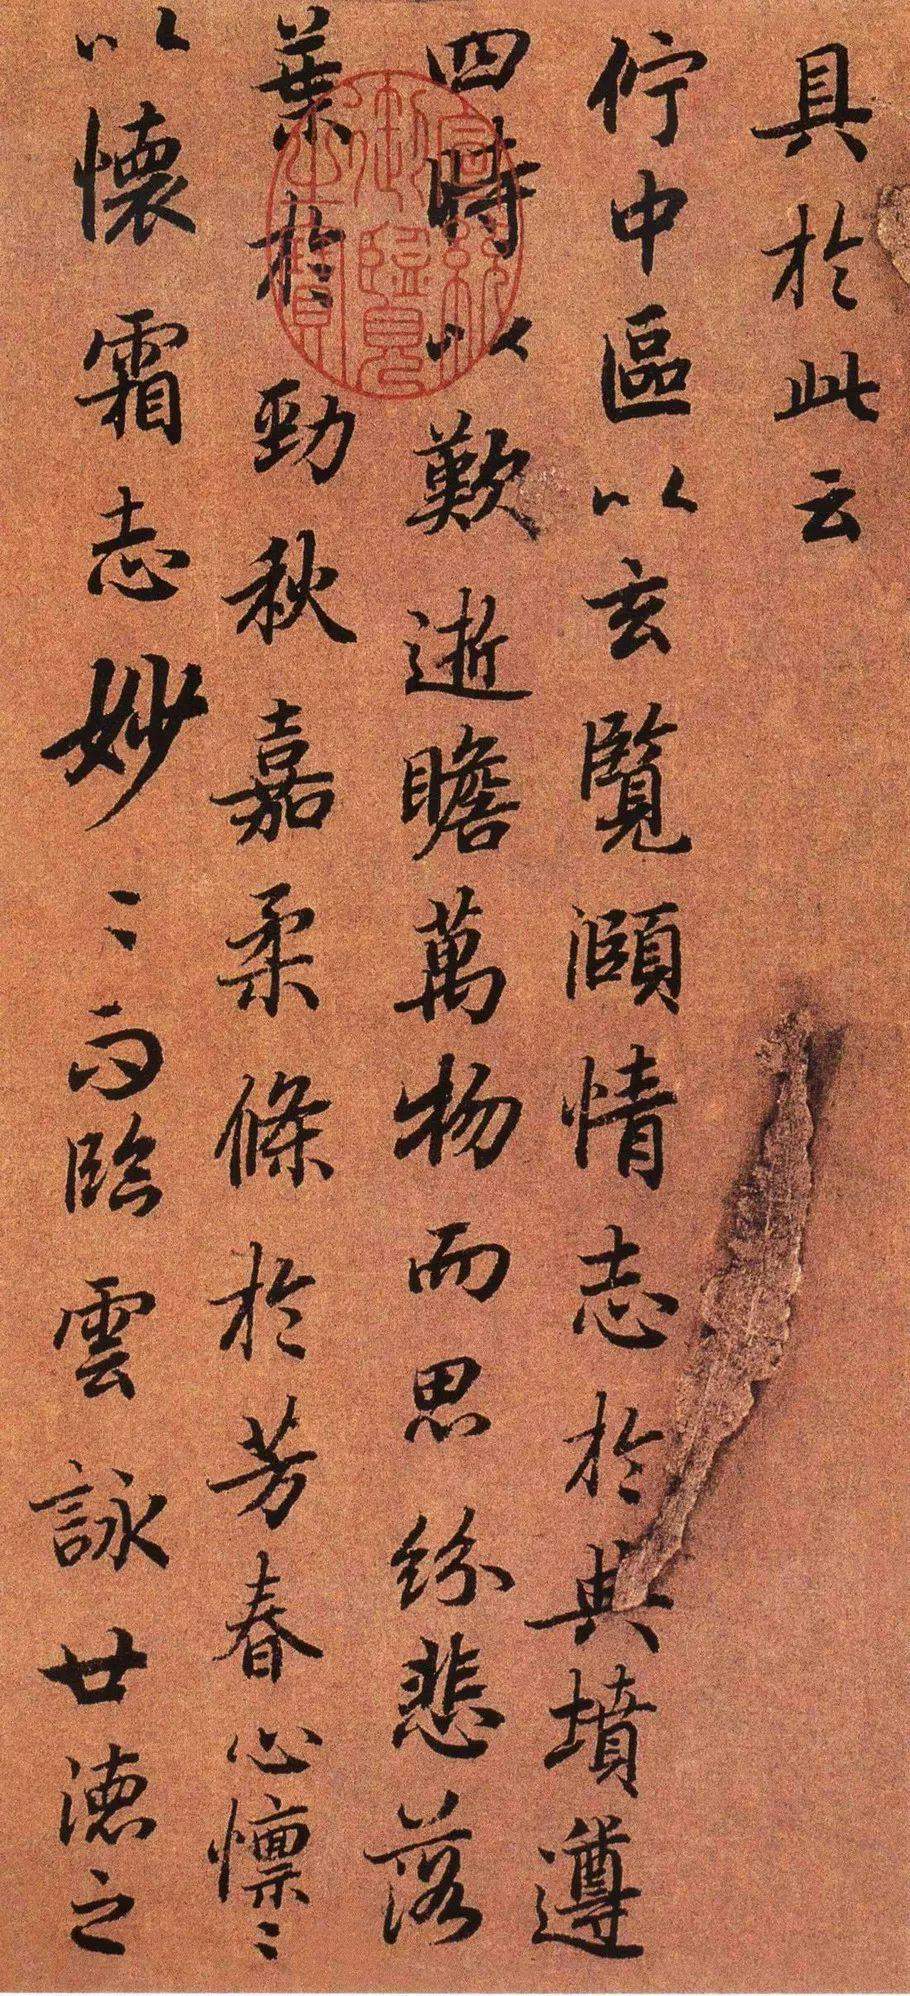 具於此云
佇中區以玄覽頤情志於典墳遵
四時以歎逝瞻萬物而思紛悲落
葉於勁秋嘉柔條於芳春心懍〻
以懷霜志妙〻而臨雲詠廿德之
宣統御覽之寶